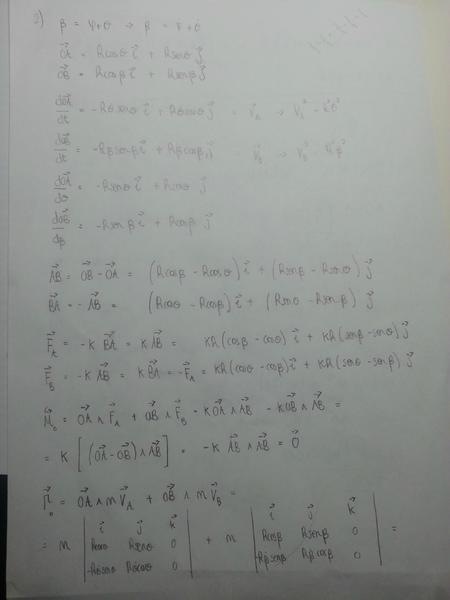 2) β = Ψ+θ → β̇ = Ψ̇ + θ̇
OA⃗ = Rcosθ i⃗ + Rsenθ j⃗
OB⃗ = Rcosβ i⃗ + Rsenβ j⃗
dOA⃗/dt = -Rθ̇senθ i⃗ + Rθ̇cosθ j⃗ = V⃗A → VA² = R²θ̇²
dOB⃗/dt = -Rβ̇senβ i⃗ + Rβ̇cosβ j⃗ = V⃗B → VB² = R²β̇²
dOA⃗/dθ = -Rsenθ i⃗ + Rcosθ j⃗
dOB⃗/dβ = -Rsenβ i⃗ + Rcosβ j⃗
AB⃗ = OB⃗ - OA⃗ = (Rcosβ - Rcosθ) i⃗ + (Rsenβ - Rsenθ) j⃗
BA⃗ = -AB⃗ = (Rcosθ - Rcosβ) i⃗ + (Rsenθ - Rsenβ) j⃗
F⃗A = -K BA⃗ = K AB⃗ = KR(cosβ - cosθ) i⃗ + KR(senβ - senθ) j⃗
F⃗B = -K AB⃗ = K BA⃗ = -F⃗A = KR(cosθ - cosβ) i⃗ + KR(senθ - senβ) j⃗
M⃗o = OA⃗ ∧ F⃗A + OB⃗ ∧ F⃗B = K OA⃗ ∧ AB⃗ - K OB⃗ ∧ AB⃗ =
= K [(OA⃗ - OB⃗) ∧ AB⃗] = -K AB⃗ ∧ AB⃗ = 0⃗
= OA⃗ ∧ m V⃗A + OB⃗ ∧ m V⃗B =
= m | i⃗ j⃗ k⃗ | + m | i⃗ j⃗ k⃗ | =
| Rcosθ Rsenθ 0 | | Rcosβ Rsenβ 0 |
| -Rθ̇senθ Rθ̇cosθ 0 | | -Rβ̇senβ Rβ̇cosβ 0 |